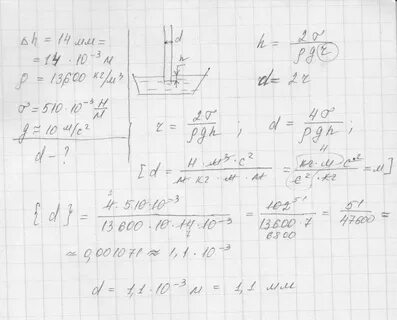 Δh = 14 мм =
= 14 · 10⁻³ м
ρ = 13,600 кг/м³
σ = 510 · 10⁻³ Н/м
g ≈ 10 м/с²
d - ?
d
h
h = 2σ / ρgr
d = 2r
r = 2σ / ρgh ; d = 4σ / ρgh ;
[ d = Н · м³ · с² / м · кг · м · м = кг · м · с² / с² · кг = м ]
Н
{ d } = 4 · 510 · 10⁻³ / 13 600 · 10 · 14 · 10⁻³ = 102 / 13 600 · 7 = 51 / 47600 ≈
7
51
6800
≈ 0,001071 ≈ 1,1 · 10⁻³
d = 1,1 · 10⁻³ м = 1,1 мм